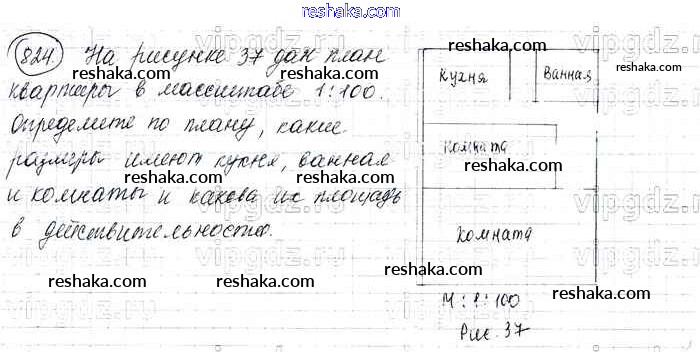 reshaka.com
824. На рисунке 37 дан план
квартиры в масштабе 1:100.
Определите по плану, какие
размеры имеют кухня, ванная
и комнаты и какова их площадь
в действительности.
Кухня
Ванная
Комната
Комната
М: 1:100
Рис. 37
reshaka.com
reshaka.com
reshaka.com
reshaka.com
reshaka.com
reshaka.com
reshaka.com
reshaka.com
reshaka.com
reshaka.com
reshaka.com
vipgdz.ru
vipgdz.ru
vipgdz.ru